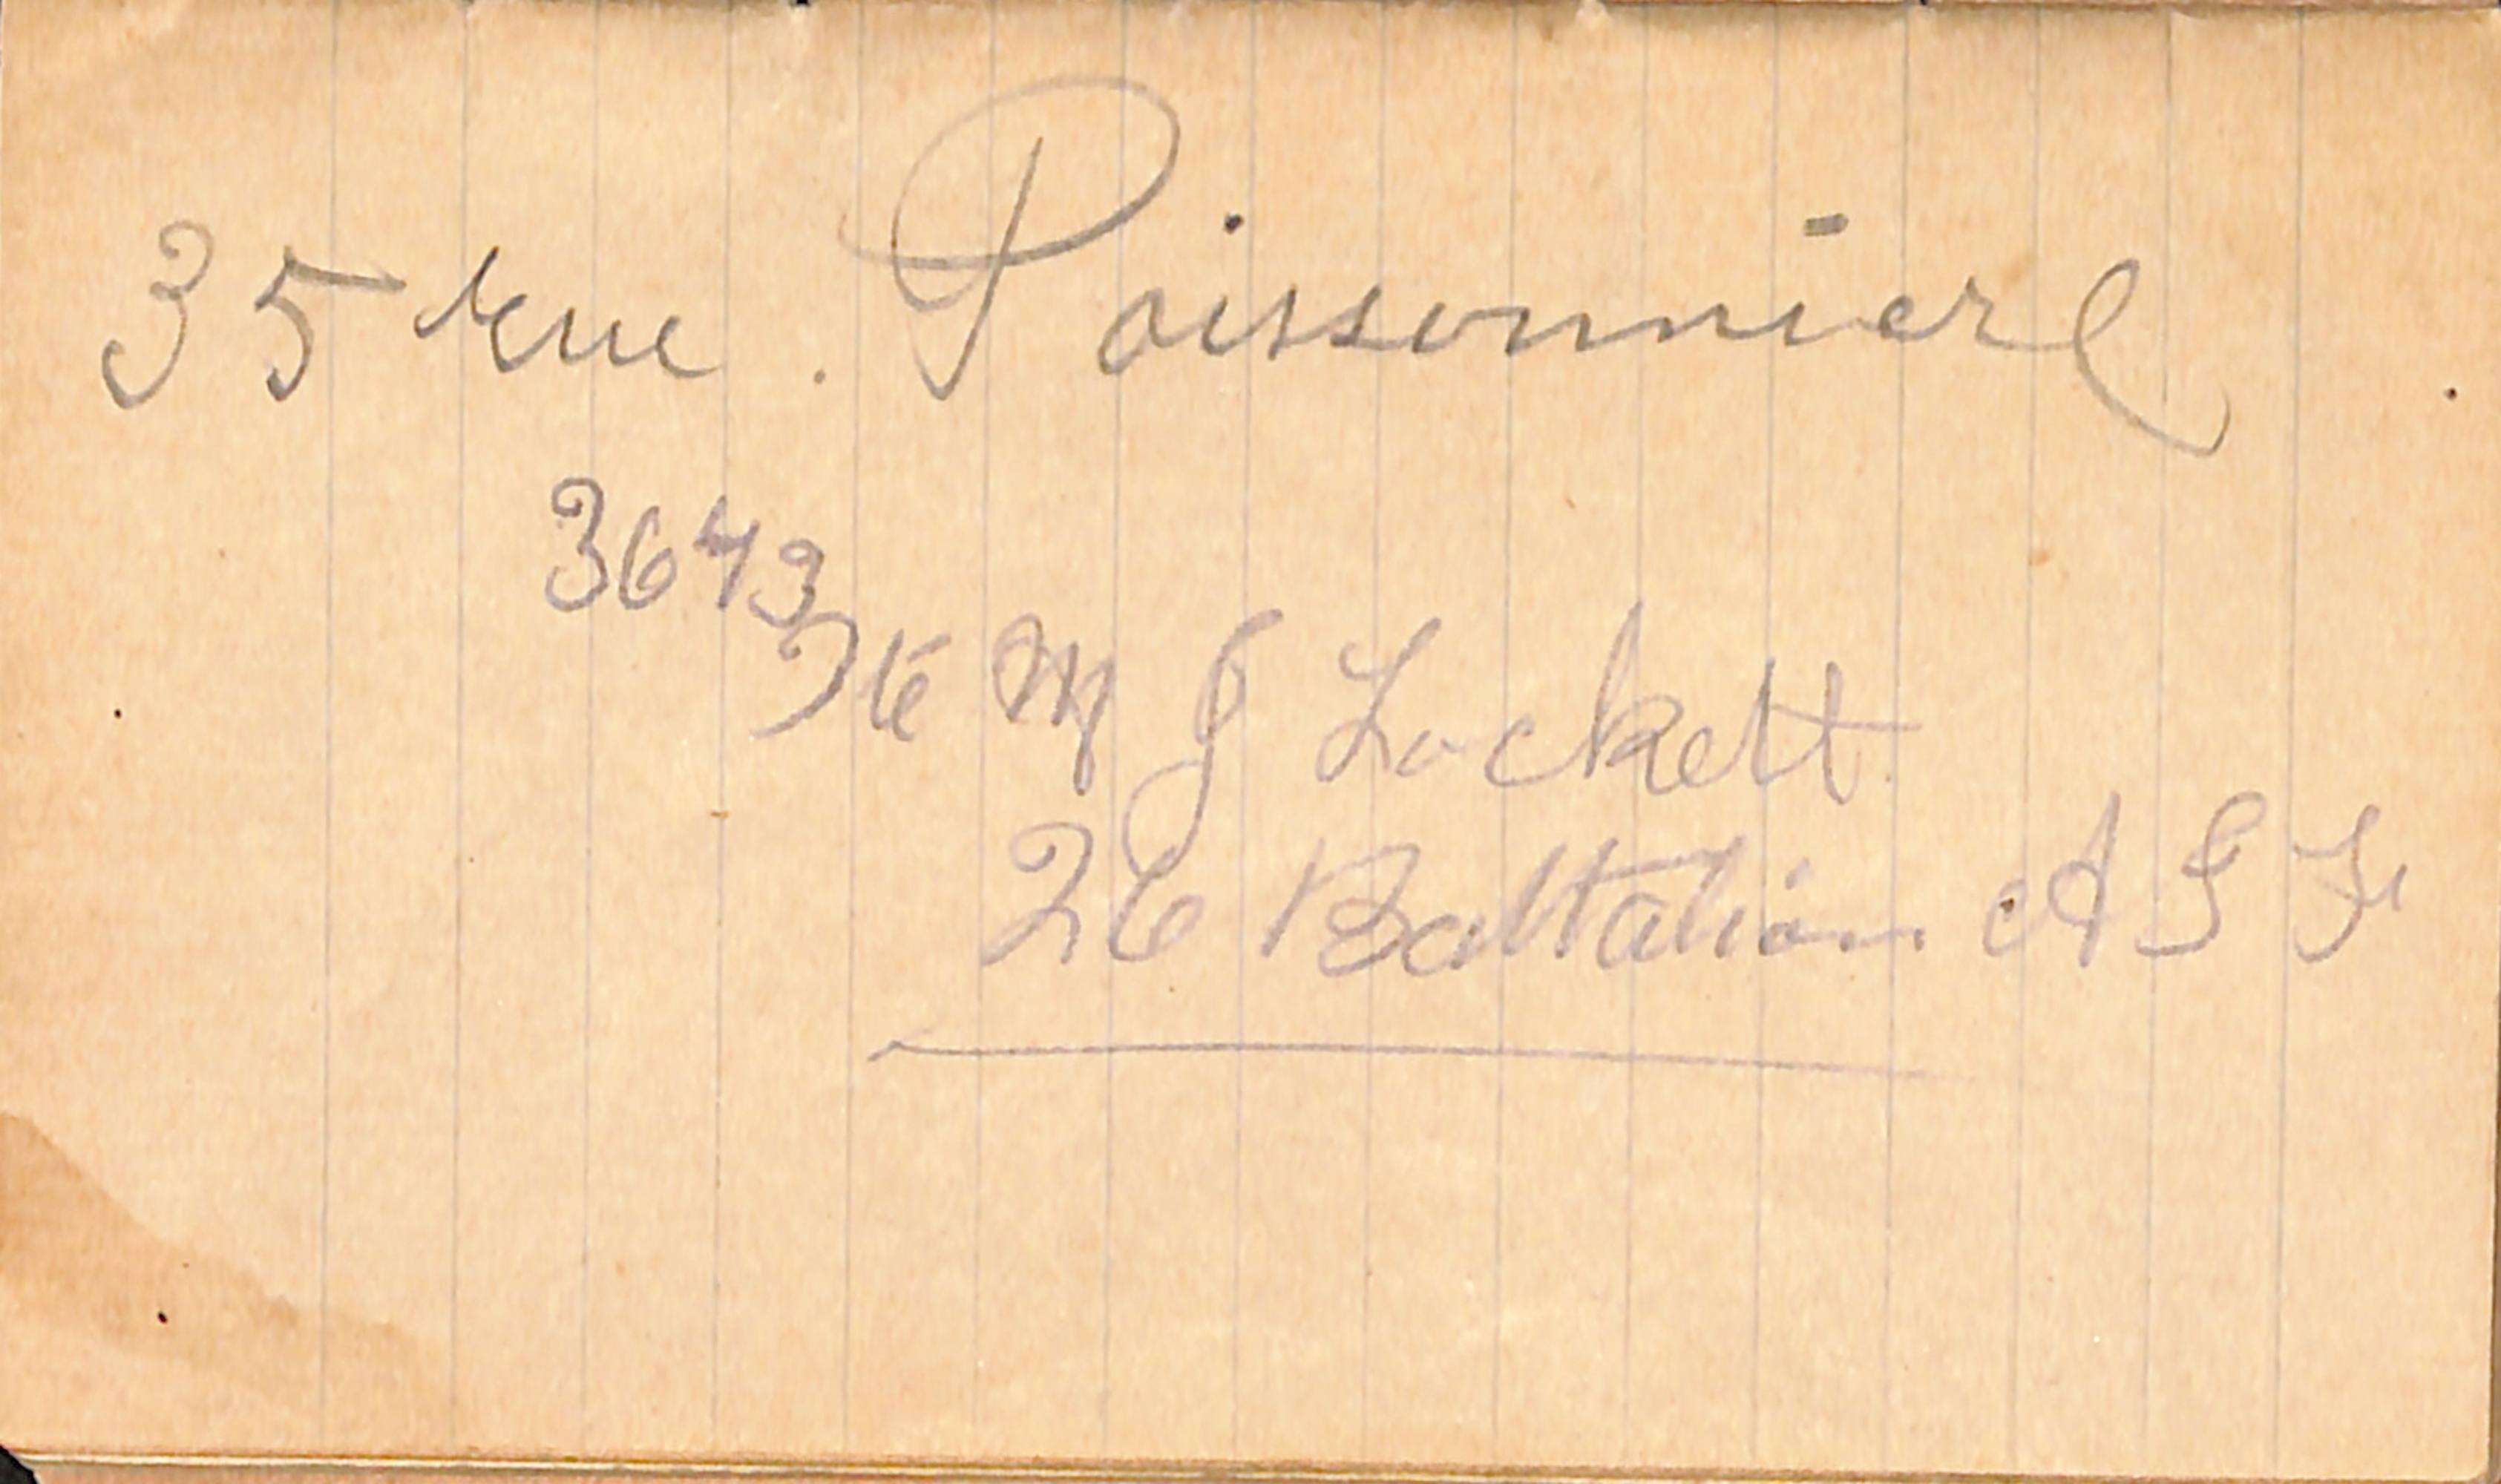 35 rue. Poissonniere
3643
Pte M J Lockett
26 Battalion A I F